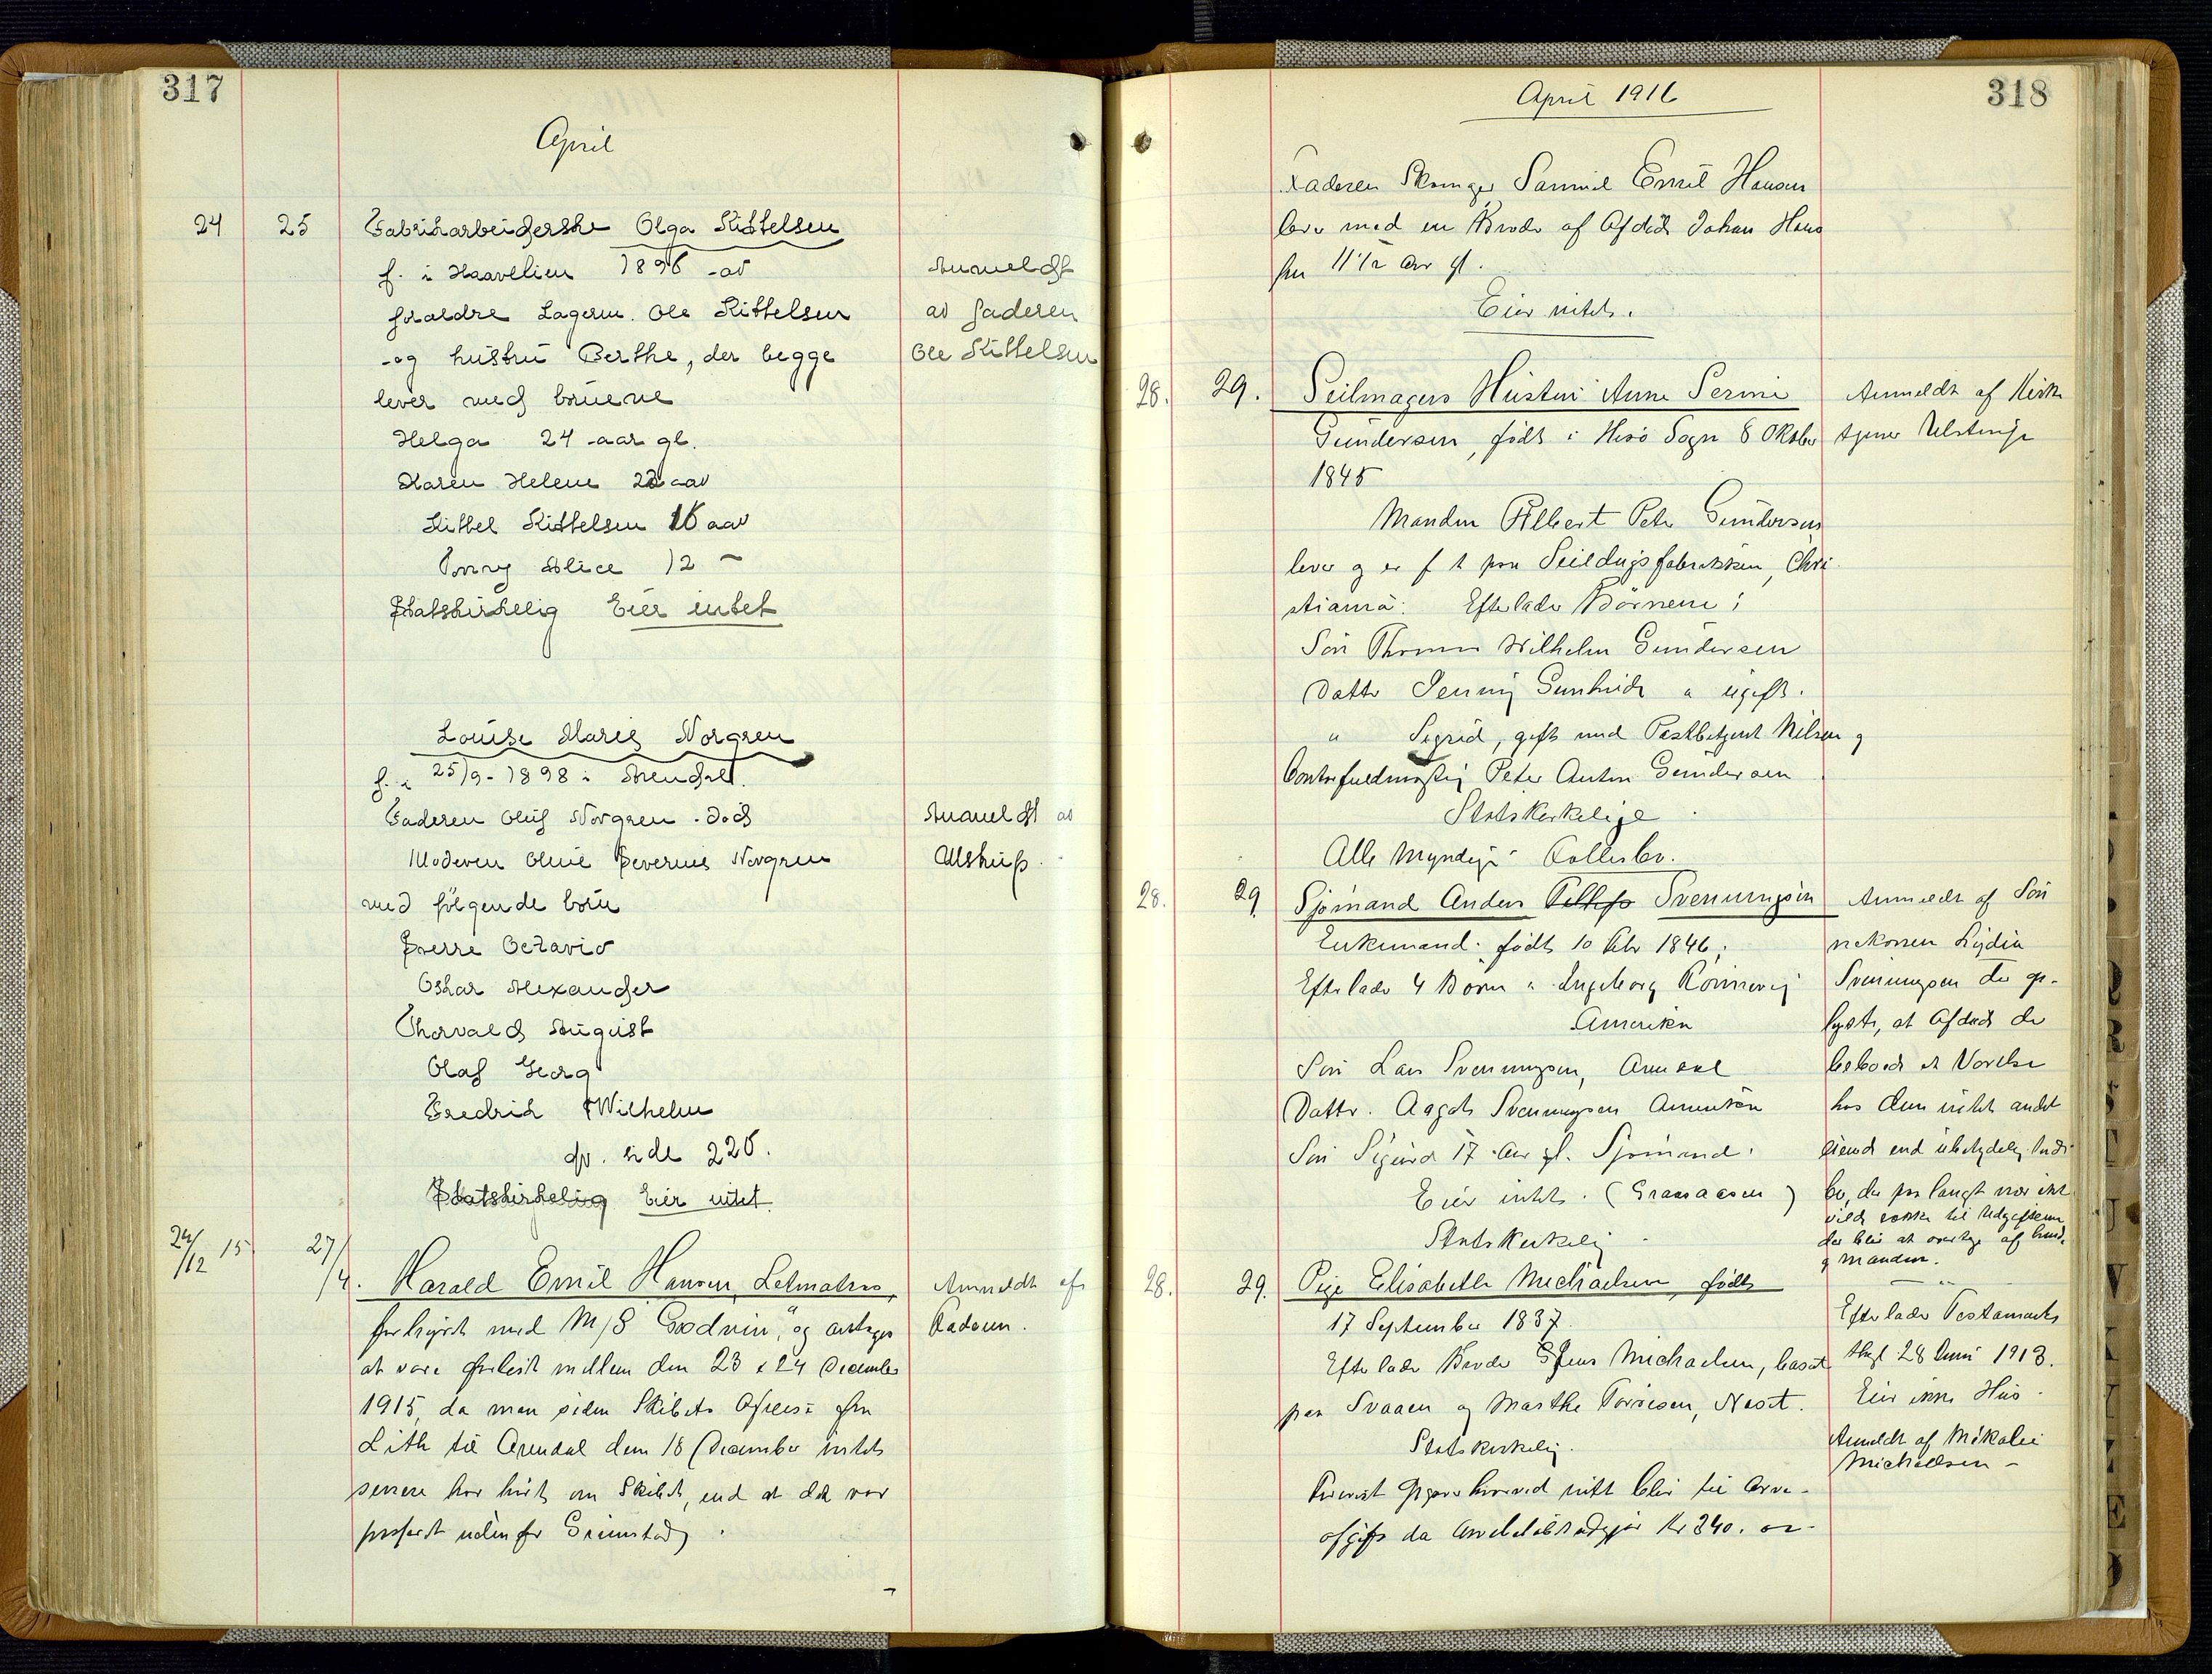 317
April
24 25 Fabrikarbeiderske Olga Kittelsen
f. i Haavelien 1896 av
foraeldre Lagerm. Ole Kittelsen
og hustru Berthe, der begge
lever med brnene
Anmeldt
av faderen
Ole Kittelsen
Helga 24 aar gl.
Karen Helene 22 aar
Kittel Kittelsen 16 aar
Alice 12 ~
Statskirkelig Eier intet
Louise Marie Norgren
f. 25/9-1898 i Arendal.
Faderen Oluf Norgren - död
Moderen Olivie Severine Norgren
med følgende børn
Anmeldt av
Sverre Octavio
Oskar Alexander
Thorvald August
Olaf Georg
Fredrik Wilhelm
cfr. side 220.
Statskirkelig Eier intet
24/12 15 27/4. Harald Emil Hansen, Letmatros,
forlist med M/S "Godvin", og antages
at være forlist mellem den 23 & 24 December
1915, da man siden Skibets Afreise fra
Lith til Arendal den 18 December intet
senere har hørt om Skibet, end at det var
passert udenfor Grimstad.
Anmeldt af
Faderen.
318
April 1916
Faderen Samuel Emil Hansen
lever med en Broder af Afdøde Johan Han
sen 11 1/2 Aar gl.
Eier intet.
28. 29. Seilmagers Hustru Anne Serine
Gundersen, født i Hisø Sogn 8 Oktober
1845
Anmeldt af Kirke
tjener
Manden Albert Peter Gundersen
lever og er f t paa Seildugsfabrikken, Chri
stiania. Efterlader Børnene:
Søn Thomas Wilhelm Gundersen
Datter Jenny Gunhild " ugift.
" Sigrid, gift med Postbetjent Nilsen og
Contorfuldmægtig Peter Anton Gundersen
Statskirkelige
Alle Myndige
28. 29. Sjømand Anders Svenningsen
Enkemand. født 10 Febr 1846;
Efterlader 4 Børn: Ingeborg Rønnevig
Amerika
Søn Lars Svenningsen, Arendal
Datter. Aagot Svenningsen Amerika
Søn Sigurd 17 Aar gl. Sjømand.
Eier intet. (Graaaasen)
Statskirkelig
Anmeldt af Søn
nekonen Lydia
Svenningsen der op-
lyste, at Afdøde der
beboede et Værelse
hos dem intet andet
eiende end ubetydelig Ind
bo, der paa langt nær ikke
vilde række til Udgifterne
der blir at overtage af hende
og Manden.
28. 29. Pige Elisabeth Michaelsen, født
17 September 1837.
Efterlader Broder Jens Michaelsen, bosat
paa Svaaen og Marthe Torsesen, Næset.
Statskirkelig.
Efterlader Testamente
thgl 28 Juni 1913.
Eier ikke Hus.
Anmeldt af Mikaline
Michaelsen -
hvorved intet blir til Arve-
afgift da udgjør Kr 340. oo